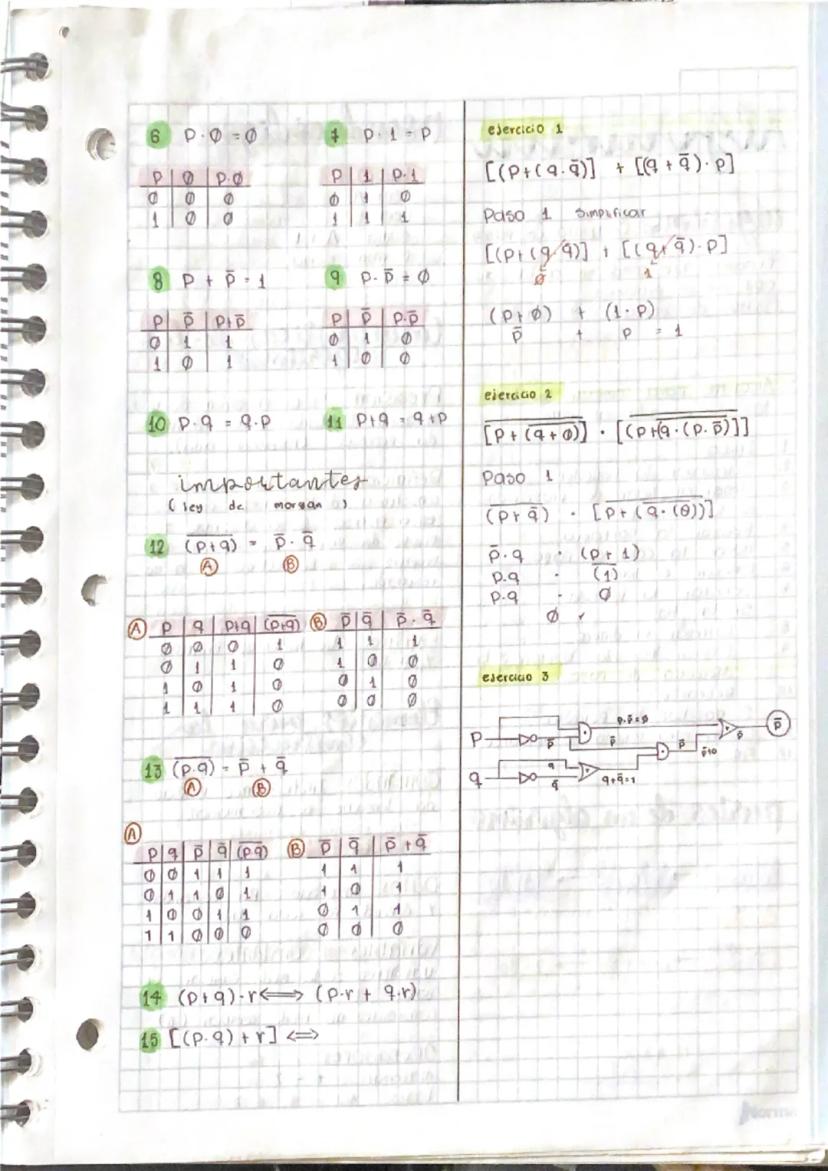 6 P · Ø = Ø
P Ø P·Ø
Ø Ø Ø
1 Ø Ø
7 P · 1 = P
P 1 P·1
Ø 1 Ø
1 1 1
8 P + p̄ = 1
P p̄ P+p̄
Ø 1 1
1 Ø 1
9 P · p̄ = Ø
P p̄ P·p̄
Ø 1 Ø
1 Ø Ø
10 P · q = q · P
11 P+q = q+P
importantes
( ley de morgan )
12 (P+q)̅ = p̄ · q̄
A B
A P q P+q (P+q)̅
Ø Ø Ø 1
Ø 1 1 Ø
1 Ø 1 Ø
1 1 1 Ø
B p̄ q̄ p̄ · q̄
1 1 1
1 Ø Ø
Ø 1 Ø
Ø Ø Ø
13 (P·q)̅ = p̄ + q̄
A B
A
P q p̄ q̄ (Pq)̅
Ø Ø 1 1 1
Ø 1 1 Ø 1
1 Ø Ø 1 1
1 1 Ø Ø Ø
B p̄ q̄ p̄ + q̄
1 1 1
1 Ø 1
Ø 1 1
Ø Ø Ø
14 (P+q)·r ⟺ (P·r + q·r)
15 [(P·q) + r] ⟺
ejercicio 1
[(P+(q·q̄)] + [(q+q̄)·P]
Paso 1 simplificar
[(P+(q q̄)] + [(q+q̄)·P]
Ø 1
(P+Ø) + (1·P)
p̄ + P = 1
ejercicio 2
[P+(q+Ø)̅]̅ · [(P+(q·(P·p̄)̅]̅]
Paso 1
(P+q̄)̅ · [P+(q·(Ø))̅]̅
p̄·q · (P+1)̅
P·q · (1)̅
P·q · Ø
Ø
ejercicio 3
P
p·p̄=Ø
p̄
p̄
p̄
p̄+0
p̄
p̄
q
q
q̄
q+q̄=1
Norma